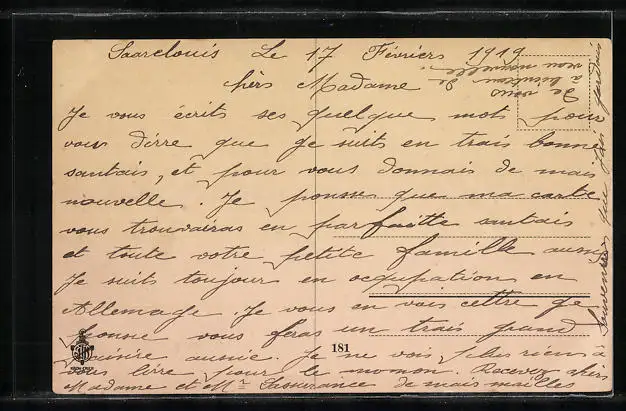 Saarelouis Le 17 Févriers 1919
Madame
Je vous écrits ses quelque mots pour
vous dirre que je suits en trais bonne
santais, et pour vous donnais de mais
nouvelle. Je pensse que ma carte
vous trouvairas en parfaitte santais
et toute votre petite famille aussi
Je suits toujour en occupation en
Allemage. Je vous en vais cettre que
vous feras un trais grand
181
aussie. Je ne vois plus rien à
vous dire pour le moment. Recever
Madame et Mr l'assurance de mais
Souvenirs que